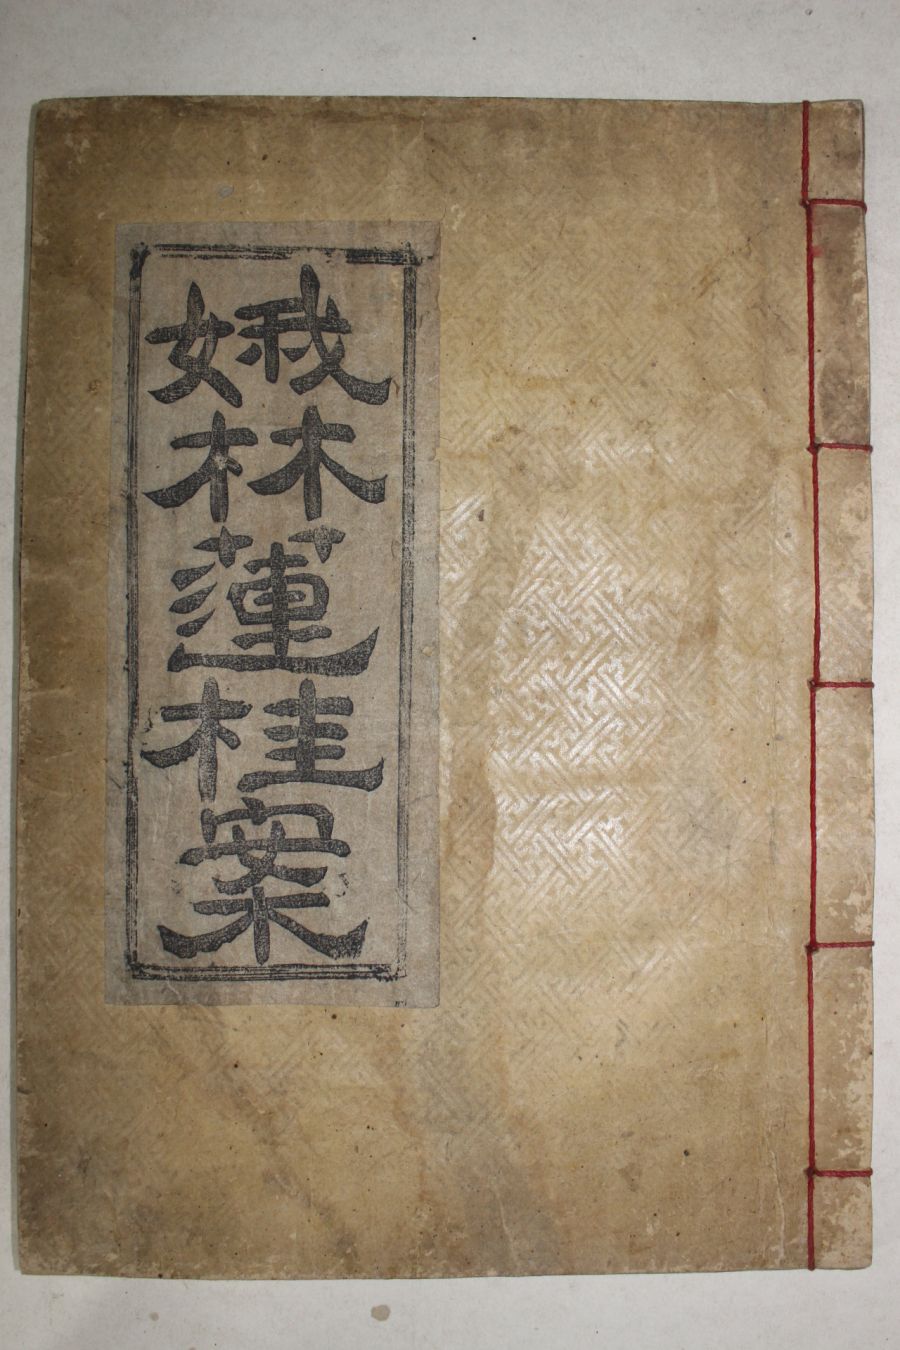 娥林蓮桂案